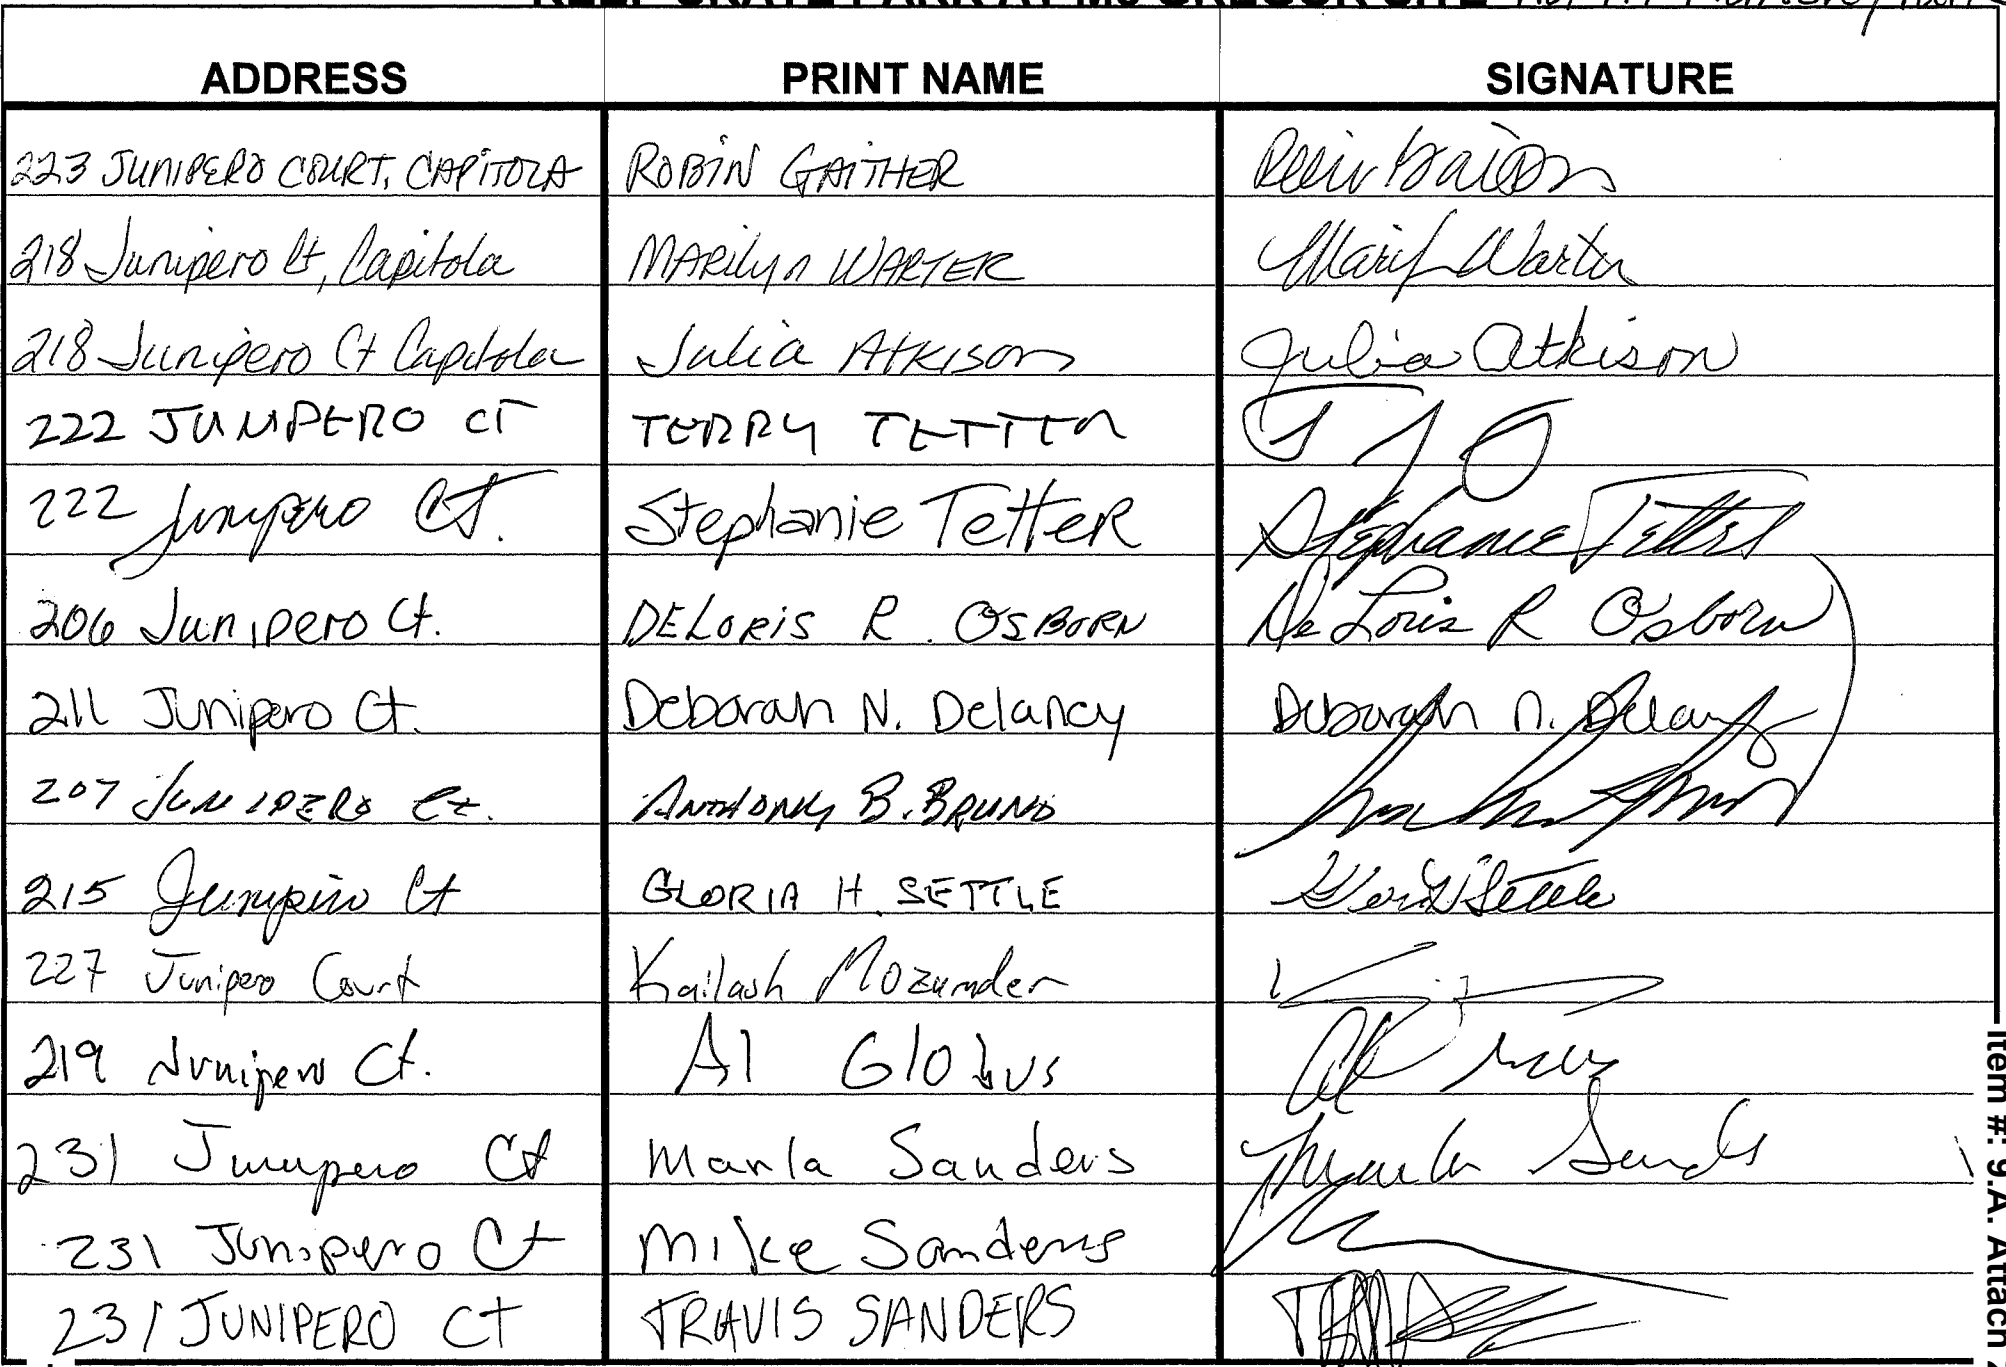 KEEP SKATE PARK AT MC GREGOR SITE
ADDRESS PRINT NAME SIGNATURE
223 JUNIPERO COURT, CAPITOLA ROBIN GAITHER
218 Junipero Ct, Capitola MARilyn WARTER Marilyn Warter
218 Junipero Ct Capitola Julia Atkison Julia Atkison
222 JUNIPERO CT TERRY TETTER
222 Junipero Ct. Stephanie Tetter Stephanie Tetter
206 Junipero Ct. DELORIS R. OSBORN DeLoris R Osborn
211 Junipero Ct. Deborah N. Delancy Deborah N. Delancy
207 JUNIPERO Ct. ANTHONY B. BRUNO
215 Junipero Ct GLORIA H. SETTLE
227 Junipero Court Kailash Mozumder
219 Junipero Ct. Al Globus
231 Junipero Ct Marla Sanders
231 Junipero Ct Mike Sanders
231 JUNIPERO CT TRAVIS SANDERS
Item #: 9.A. Attach